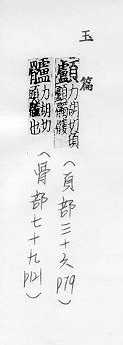 玉篇
顱 力胡切
(頁部三十六 p79)
髗 力胡切頭髗也
(骨部七十九 p121)